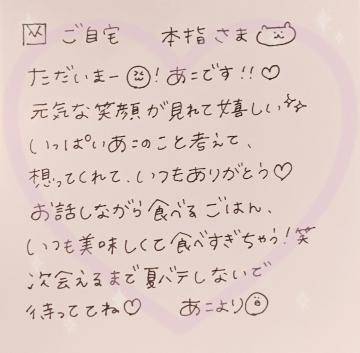 ご自宅 本指さま
ただいまー！あこです!!♡
元気な笑顔が見れて嬉しい✨
いっぱいあこのこと考えて、
想ってくれて、いつもありがとう♡
お話しながら食べるごはん、
いつも美味しくて食べすぎちゃう！笑
次会えるまで夏バテしないで
待っててね♡ あこより